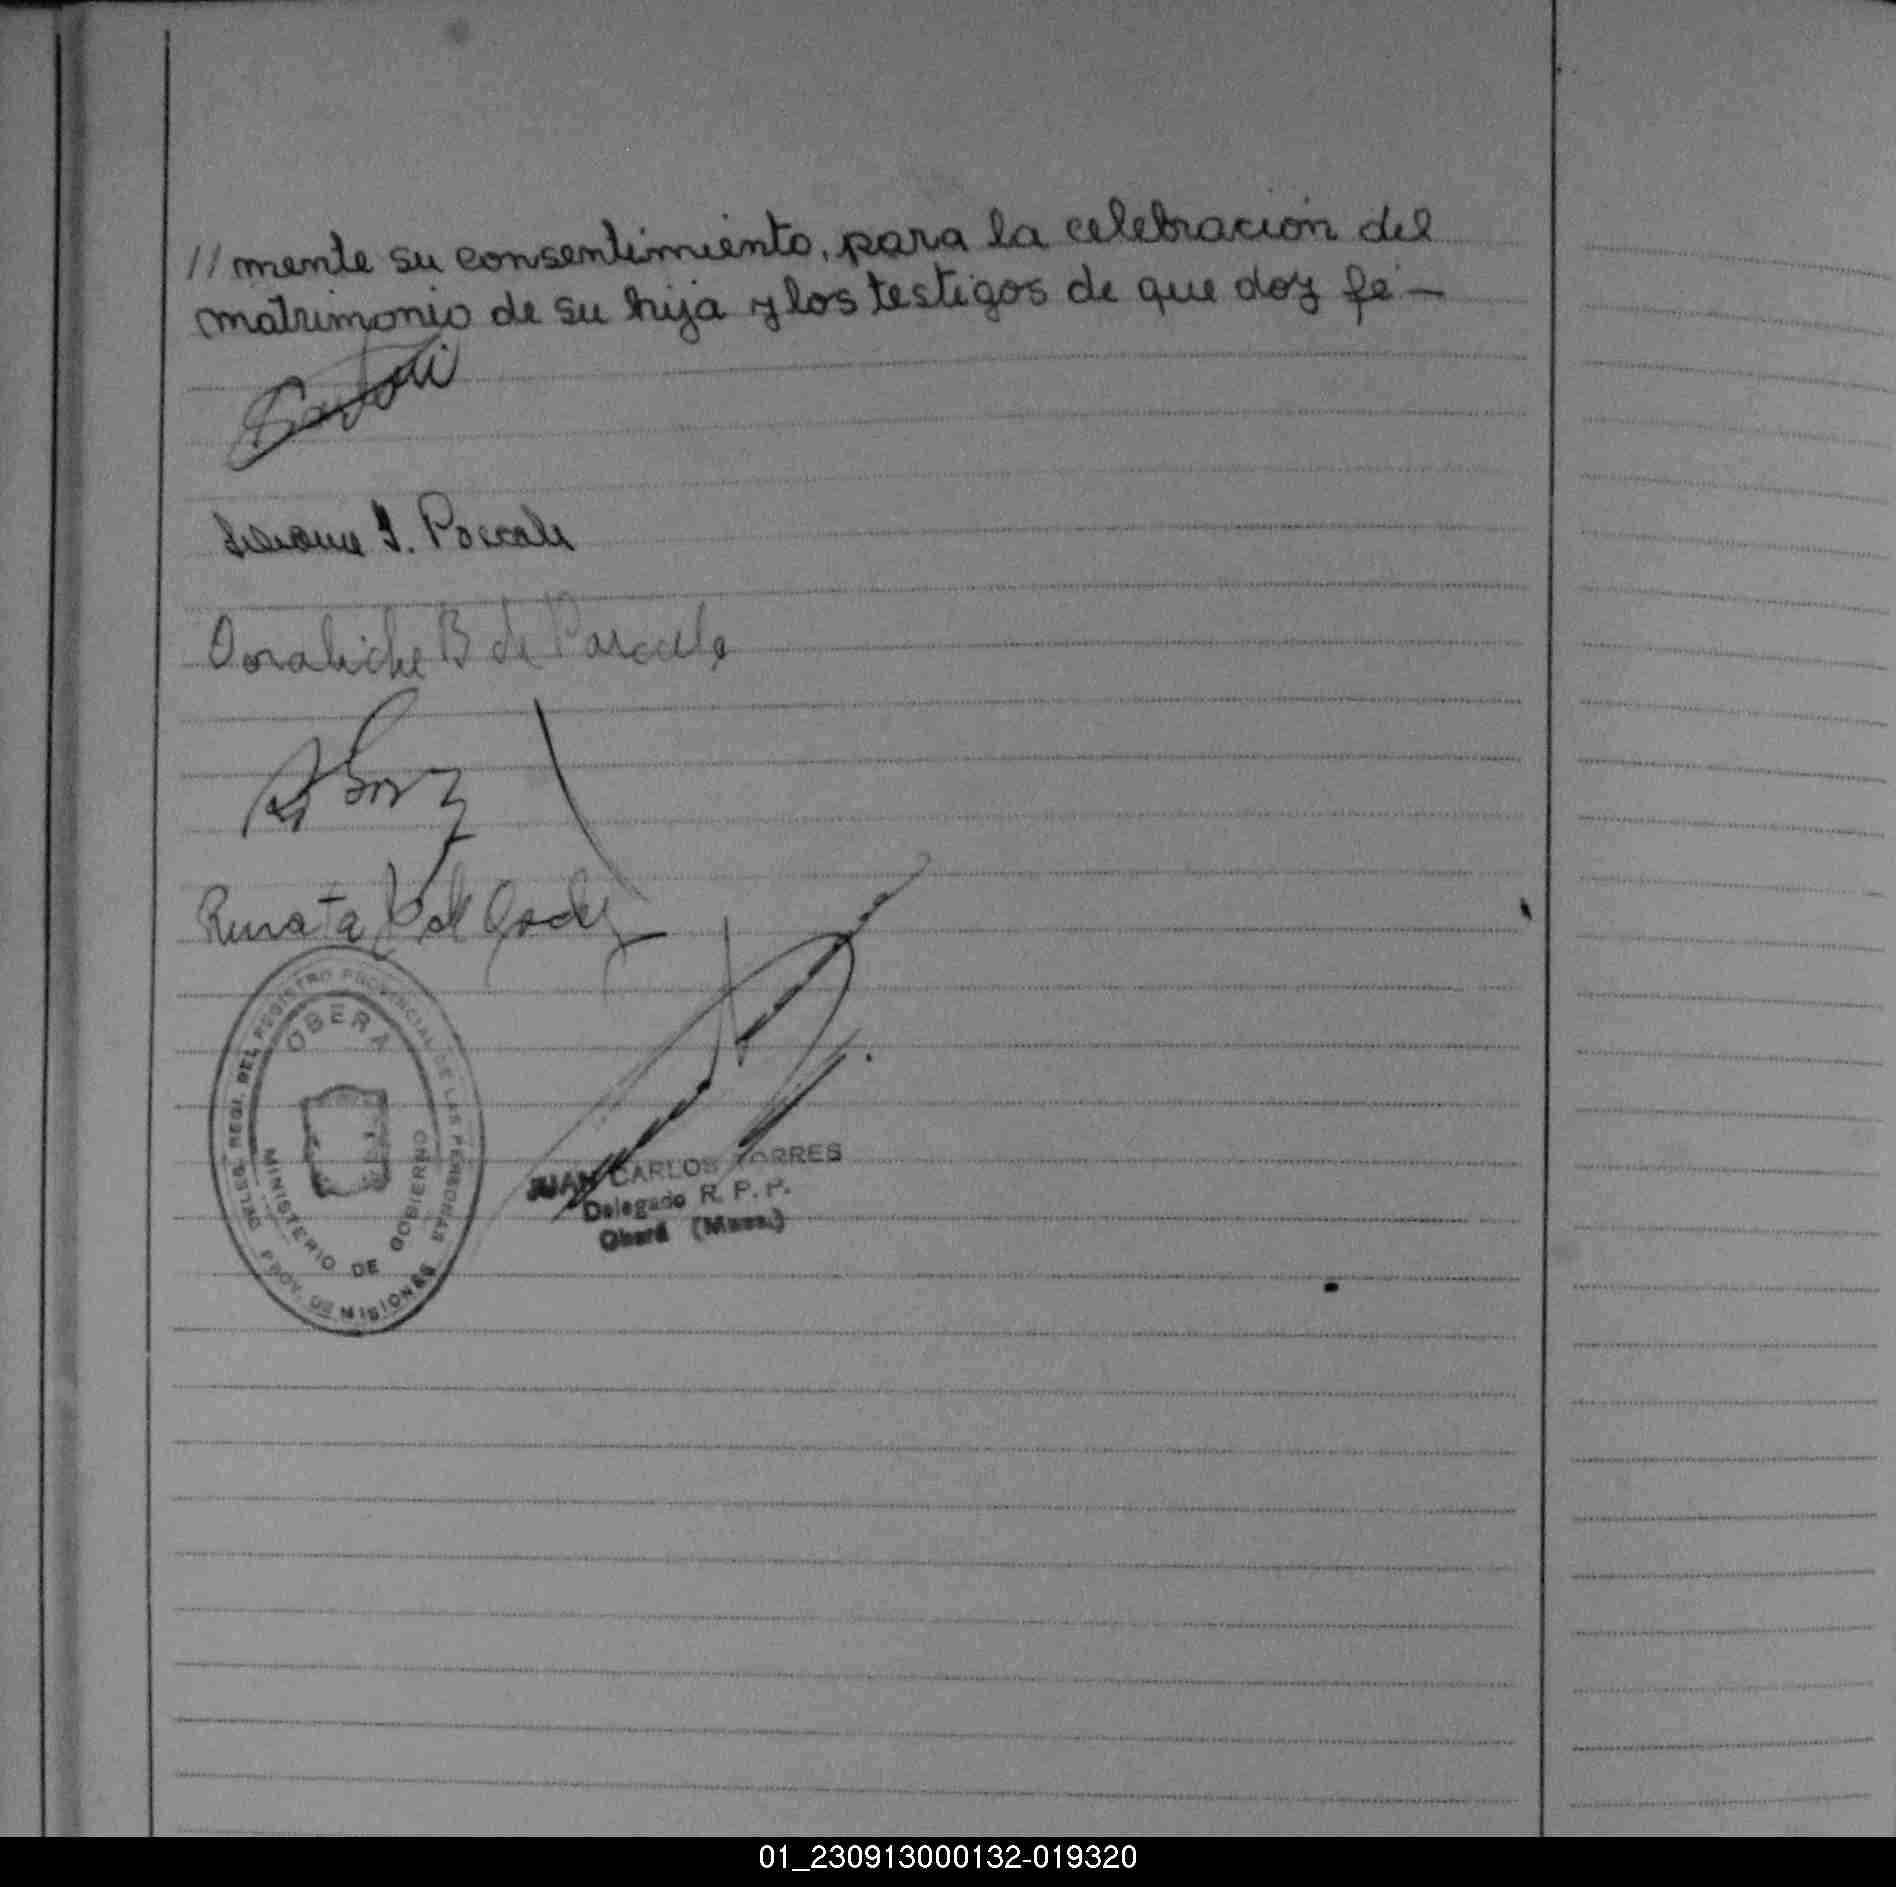 //mente su consentimiento, para la celebración del
matrimonio de su hija y los testigos de que doy fe –
I. Pascale
B de Pascale
Renata de
DELEG. REGI. DEL REGISTRO PROVINCIAL DE LAS PERSONAS
OBERA
MINISTERIO DE GOBIERNO
PROV. DE MISIONES
JUAN CARLOS TORRES
Delegado R. P. P.
Oberá (Mnes.)
01_230913000132-019320